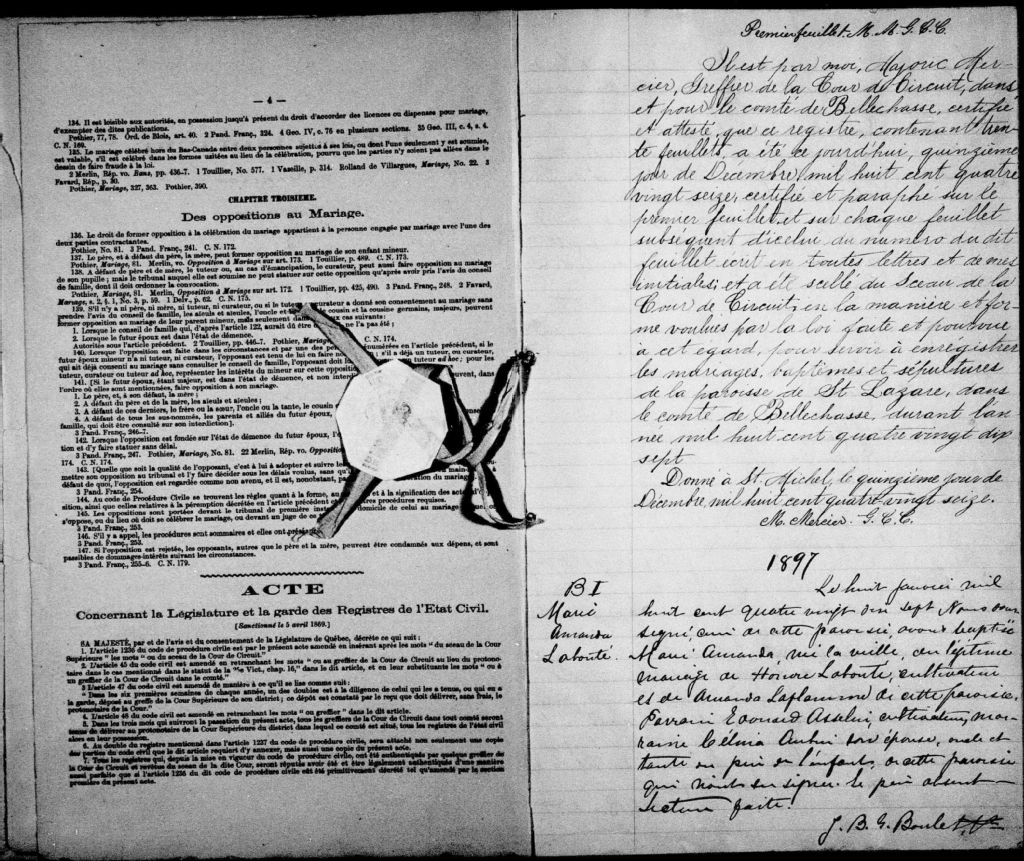 — 4 —
134. Il est loisible aux autorités, en possession jusqu'à présent du droit d'accorder des licences ou dispenses pour mariage,
d'exempter des dites publications.
Pothier, 77, 78. Ord. de Blois, art. 40. 2 Pand. Franç., 324. 4 Geo. IV, c. 76 en plusieurs sections. 35 Geo. III, c. 4, s. 4.
C. N. 169.
135. Le mariage célébré hors du Bas-Canada entre deux personnes sujettes à ses lois, ou dont l'une seulement y est soumise,
est valable, s'il est célébré dans les formes usitées au lieu de la célébration, pourvu que les parties n'y soient pas allées dans le
dessin de faire fraude à la loi.
2 Merlin, Rép. vo. Bans, pp. 436-7. 1 Touillier, No. 577. 1 Vazeille, p. 314. Rolland de Villargues, Mariage, No. 22. 3
Favard, Rép., p. 30.
Pothier, Mariage, 327, 363. Pothier, 390.
CHAPITRE TROISIEME.
Des oppositions au Mariage.
136. Le droit de former opposition à la célébration du mariage appartient à la personne engagée par mariage avec l'une des
deux parties contractantes.
Pothier, No. 81. 3 Pand. Franç., 241. C. N. 172.
137. Le père, et à défaut du père, la mère, peut former opposition au mariage de son enfant mineur.
Pothier, Mariage, 81. Merlin, vo. Opposition à Mariage sur art. 173. 1 Touillier, p. 489. C. N. 173.
138. A défaut de père et de mère, le tuteur ou, au cas d'émancipation, le curateur, peut aussi faire opposition au mariage
de son pupille; mais le tribunal auquel elle est soumise ne peut statuer sur cette opposition qu'après avoir pris l'avis du conseil
de famille, dont il doit ordonner la convocation.
Pothier, Mariage, 81. Merlin, Opposition à Mariage sur art. 172. 1 Touillier, pp. 425, 490. 3 Pand. Franç., 248. 2 Favard,
Mariage, s. 2, § 1, No. 3, p. 59. 1 Delv., p. 62. C. N. 175.
139. S'il n'y a ni père, ni mère, ni tuteur, ni curateur, ou si le tuteur curateur a donné son consentement au mariage sans
prendre l'avis du conseil de famille, les aïeuls et aïeules, l'oncle et la tante, le cousin et la cousine germains, majeurs, peuvent
former opposition au mariage de leur parent mineur, mais seulement dans deux cas suivants:
1. Lorsque le conseil de famille qui, d'après l'article 122, aurait dû être ne l'a pas été;
2. Lorsque le futur époux est dans l'état de démence.
Autorités sous l'article précédent. 2 Touillier, pp. 446-7. Pothier, Mariage C. N. 174.
140. Lorsque l'opposition est faite dans les circonstances et par une des énumérées en l'article précédent, si le
futur époux mineur n'a ni tuteur, ni curateur, l'opposant est tenu de lui en faire s'il a déjà un tuteur, ou curateur,
qui ait déjà consenti au mariage sans consulter le conseil de famille, l'opposant doit tuteur ad hoc; pour les
tuteur, curateur ou tuteur ad hoc, représenter les intérêts du mineur sur cette
141. [Si le futur époux, étant majeur, est dans l'état de démence, et non peuvent, dans
l'ordre où elles sont mentionnées, faire opposition à son mariage.
1. Le père, et, à son défaut, la mère;
2. A défaut du père et de la mère, les aïeuls et aïeules;
3. A défaut de ces derniers, le frère ou la sœur, l'oncle ou la tante, le cousin
4. A défaut de tous les sus-nommés, les parents et alliés du futur époux,
famille, qui doit être consulté sur son interdiction].
3 Pand. Franç., 246-7.
142. Lorsque l'opposition est fondée sur l'état de démence du futur époux,
tion et d'y faire statuer sans délai.
3 Pand. Franç., 247. Pothier, Mariage, No. 81. 22 Merlin, Rép. vo. Opposition
174. C. N. 174.
143. [Quelle que soit la qualité de l'opposant, c'est à lui à adopter et suivre
mettre son opposition au tribunal et l'y faire décider sous les délais voulus, sans
défaut de quoi, l'opposition est regardée comme non avenue, et il est, nonobstant,
3 Pand. Franç., 254.
144. Au code de Procédure Civile se trouvent les règles quant à la forme, et à la signification des
sition, ainsi que celles relatives à la péremption décrétée en l'article précédent procédures requises.
145. Les oppositions sont portées devant le tribunal de première domicile de celui au mariage
s'oppose, ou du lieu où doit se célébrer le mariage, ou devant un juge de
3 Pand. Franç., 253.
146. S'il y a appel, les procédures sont sommaires et elles ont
3 Pand. Franç., 253.
147. Si l'opposition est rejetée, les opposants, autres que le père et la mère, peuvent être condamnés aux dépens, et sont
passibles de dommages-intérêts suivant les circonstances.
3 Pand. Franç., 255-6. C. N. 179.
ACTE
Concernant la Législature et la garde des Registres de l'Etat Civil.
[Sanctionné le 5 avril 1869.]
SA MAJESTÉ, par et de l'avis et du consentement de la Législature de Québec, décrète ce qui suit:
1. L'article 1236 du code de procédure civile est par le présent acte amendé en insérant après les mots "du sceau de la Cour
Supérieure" les mots "ou du sceau de la Cour de Circuit."
2. L'article 45 du code civil est amendé en retranchant les mots "ou au greffier de la Cour de Circuit au lieu du protono-
taire dans le cas mentionné dans le statut de la Vict, chap. 16," dans le dit article, et en leur substituant les mots "ou à
un greffier de la Cour de Circuit dans le comté."
3 L'article 47 du code civil est amendé de manière à ce qu'il se lise comme suit:
"Dans les six premières semaines de chaque année, un des doubles est à la diligence de celui qui les a tenus, ou qui en a
la garde, déposé au greffe de la Cour Supérieure de son district; ce dépôt est constaté par le reçu que doit délivrer, sans frais, le
protonotaire de la Cour."
4. L'article 48 du code civil est amendé en retranchant les mots "on greffier" dans le dit article.
5. Dans les trois mois qui suivront la passation du présent acte, tous les greffiers de la Cour de Circuit dans tout comté seront
tenus de délivrer au protonotaire de la Cour Supérieure du district dans lequel ce comté est situé, tous les registres de l'état civil
alors en leur possession.
6. Au double du registre mentionné dans l'article 1237 du code de procédure civile, sera attaché non seulement une copie
des parties du code civil que le dit article requiert d'y annexer, mais aussi une copie du présent acte.
7. Tous les registres qui, depuis la mise en vigueur du code de procédure civile, ont été authentiqués par quelque greffier de
la Cour de Circuit et revêtus du sceau de la dite Cour, seront réputés avoir été et être légalement authentiqués d'une manière
aussi parfaite que si l'article 1236 du dit code de procédure civile eût été primitivement décrété tel qu'amendé par la section
première du présent acte.
Premier feuillet. M. M. G. C. C.
Il est par moi, Majoric Mer-
cier, Greffier de la Cour de Circuit, dans
et pour le comté de Bellechasse, certifié
et attesté, que ce registre, contenant tren-
te feuillets, a été ce jourd'hui, quinzième
jour de Décembre mil huit cent quatre
vingt seize, certifié et paraphé sur le
premier feuillet et sur chaque feuillet
subséquent d'icelui du numéro du dit
feuillet écrit en toutes lettres et de mes
initiales; et a été scellé du Sceau de la
Cour de Circuit, en la manière et for-
me voulues par la loi faite et pourvue
à cet égard, pour servir à enrégistrer
les mariages, baptêmes et sépultures
de la paroisse de St Lazare, dans
le comté de Bellechasse, durant l'an
née mil huit cent quatre vingt dix
sept.
Donné à St. Michel, le quinzième jour de
Décembre, mil huit cent quatre vingt seize.
M. Mercier. G. C. C.
1897
B I
Marie
Amanda
Labonté.
Le huit janvier mil
huit cent quatre vingt dix sept Nous sous
signé, curé de cette paroisse, avons baptisé
Marie Amanda, née la veille, du légitime
mariage de Honoré Labonté, cultivateur
et de Amanda Laflamme de cette paroisse.
Parrain Edouard Asselin cultivateur, mar-
raine Célina Aubin son épouse, oncle et
tante du père de l'enfant, de cette paroisse
qui n'ont su signer. le père absent
Lecture faite.
J. B. G. Boulet, Ptre